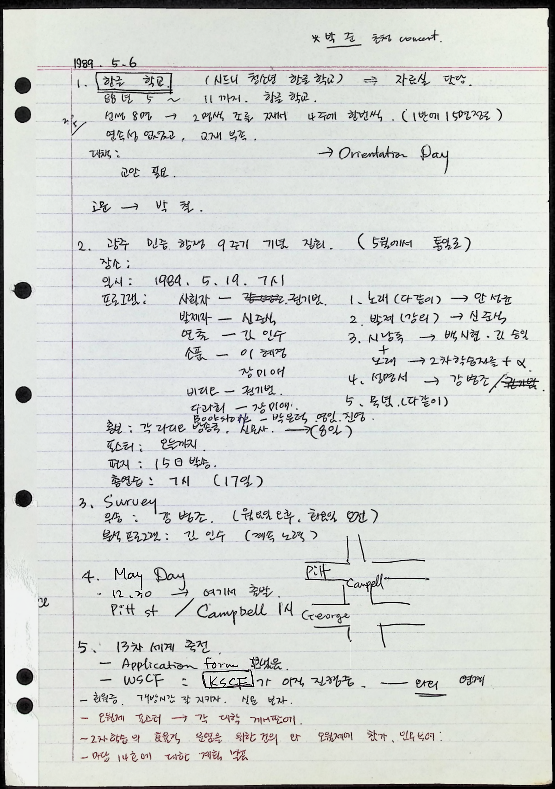 * 박 준 초청 concert.
1989. 5. 6
1. 한글 학교 (시드니 청소년 한글학교) ⇒ 자료실 담당.
88년 5 ~ 11까지. 한글 학교.
선생 8명 → 2명씩 조를 짜서 4주에 한번씩. (1번에 15명정도)
연속성 없었고, 교재 부족.
대책: → Orientation Day
교안 필요.
고문 → 박 철.
2. 광주 민중 항쟁 9주기 기념 집회. (5월에서 통일로)
장소:
일시: 1989. 5. 19. 7시
프로그램: 사회자 - 권기범. 1. 노래 (다같이) → 안성균
발제자 - 신준식 2. 발제 (강의) → 신준식
연출 - 김 인수 3. 시낭독 → 백시현. 김승일
소품 - 이 혜경 +
장미애 노래 → 2차학습자들 + α.
비디오 - 권기범. 4. 성명서 → 강병조 / 권기범
다과회 - 장미애. 5. 묵념. (다같이)
Bookstall - 박은덕, 영일, 진영
홍보: 각 라디오 방송국, 신문사. → (8일)
포스터: 오늘까지.
편지: 15日 발송.
총연습: 7시 (17일)
3. Survey
우송: 강 병조. (월요일 오후, 화요일 오전)
분석 프로그램: 김 인수 (계속 노력)
4. May Day
· 12.30 → 여기서 출발
Pitt st / Campbell 1시
Pitt
Campell
George
5. 13차 세계 축전
- Application form 보냈음
- WSCF : KSCF 가 아직 진행중. — 연계
- 회원증. 개방시간 잘 지키자. 신문 보자.
- 오월제 포스터 → 각 대학 게시판에.
- 2차학습의 효율적 운영을 위한 건의
- 마당 14호에 대한 계획 발표